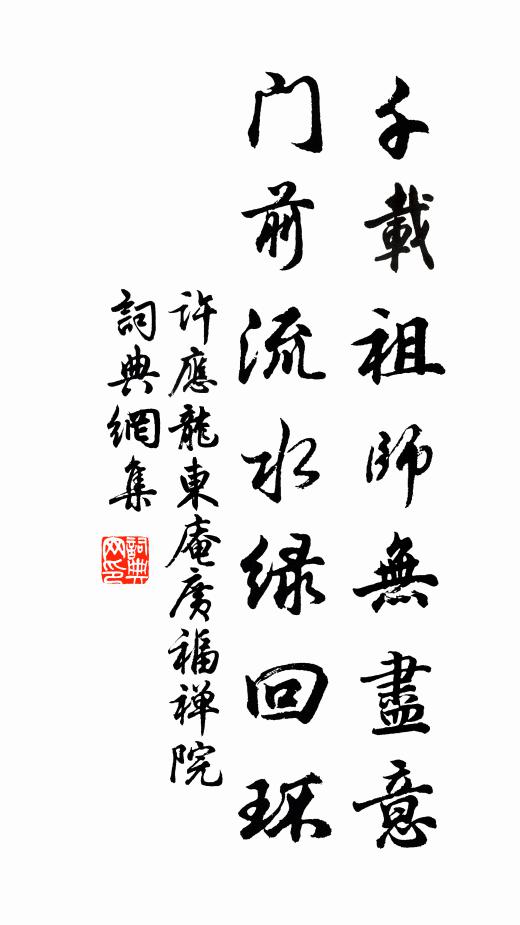 千載祖師無盡意
門前流水绿回环
許應龍東庵廣福禅院
詞典網集
詞典
网印